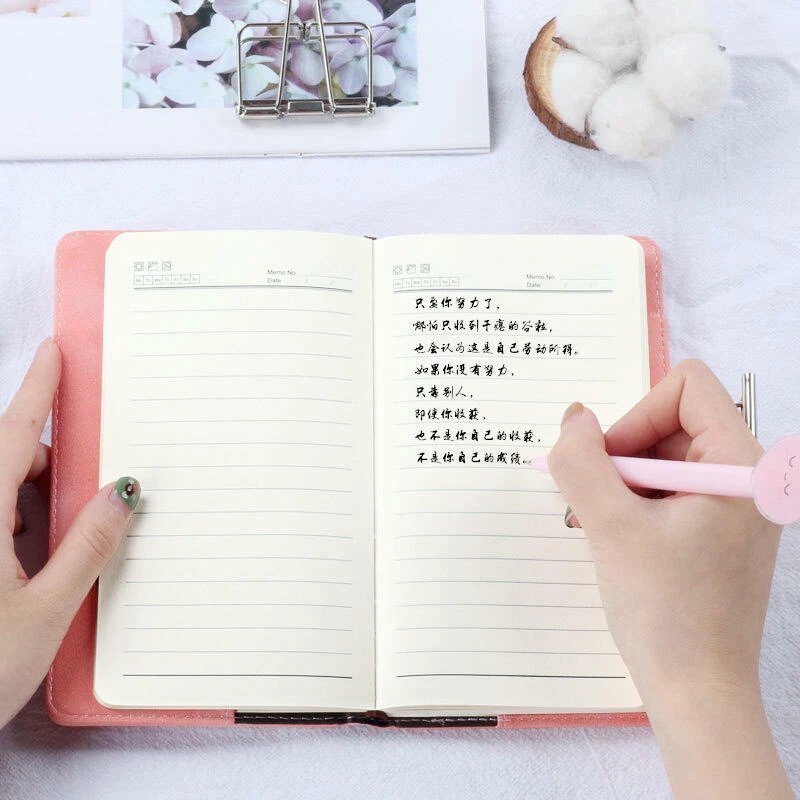 Memo No.
Date / /
Mo Tu We Th Fr Sa Su
Memo No.
Date / /
Mo Tu We Th Fr Sa Su
只要你努力了，
哪怕只收到干瘪的谷粒，
也会认为这是自己劳动所得。
如果你没有努力，
只靠别人，
即使你收获，
也不是你自己的收获，
不是你自己的成绩。